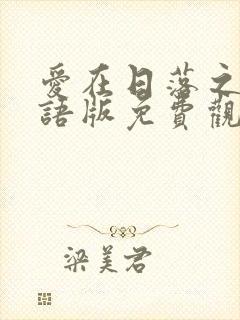 愛在日落之
語版免費觀
梁美君